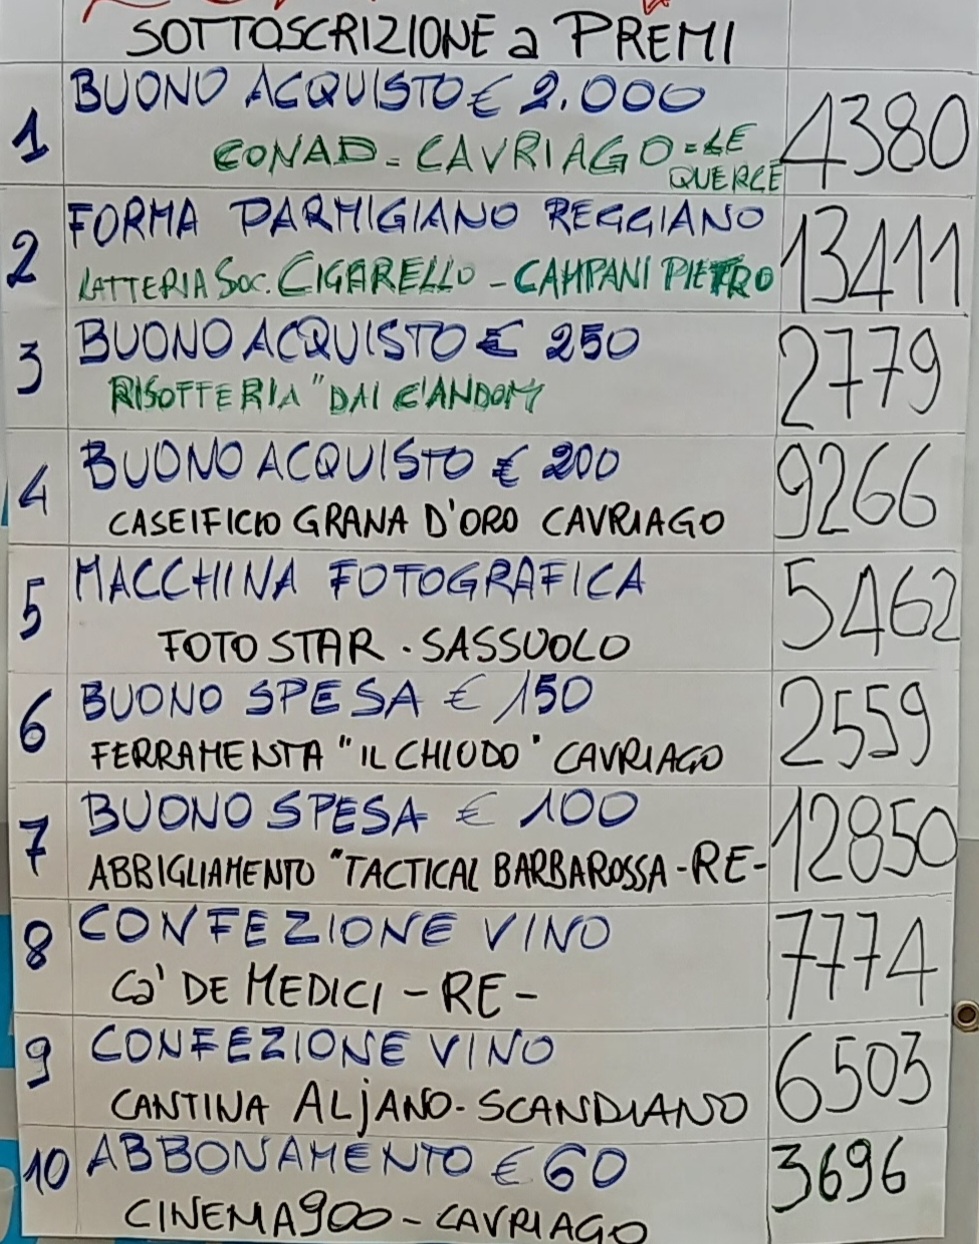 SOTTOSCRIZIONE a PREMI
1 BUONO ACQUISTO € 2.000 4380
CONAD - CAVRIAGO = LE
QUERCE
2 FORMA PARMIGIANO REGGIANO 13411
LATTERIA SOC. CIGARELLO - CAMPANI PIETRO
3 BUONO ACQUISTO € 250 2779
RISOTTERIA "DAI C'ANDOM
4 BUONO ACQUISTO € 200 9266
CASEIFICIO GRANA D'ORO CAVRIAGO
5 MACCHINA FOTOGRAFICA 5462
FOTO STAR . SASSUOLO
6 BUONO SPESA € 150 2559
FERRAMENTA "IL CHIODO" CAVRIAGO
7 BUONO SPESA € 100 12850
ABBIGLIAMENTO "TACTICAL BARBAROSSA - RE -
8 CONFEZIONE VINO 7774
Ca' DE MEDICI - RE -
9 CONFEZIONE VINO 6503
CANTINA ALJANO - SCANDIANO
10 ABBONAMENTO € 60 3696
CINEMA900 - CAVRIAGO